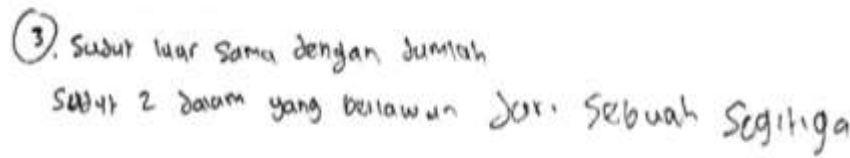 3. Sudut luar sama dengan Jumlah
Sudut 2 dalam yang berlawan dari sebuah Segitiga